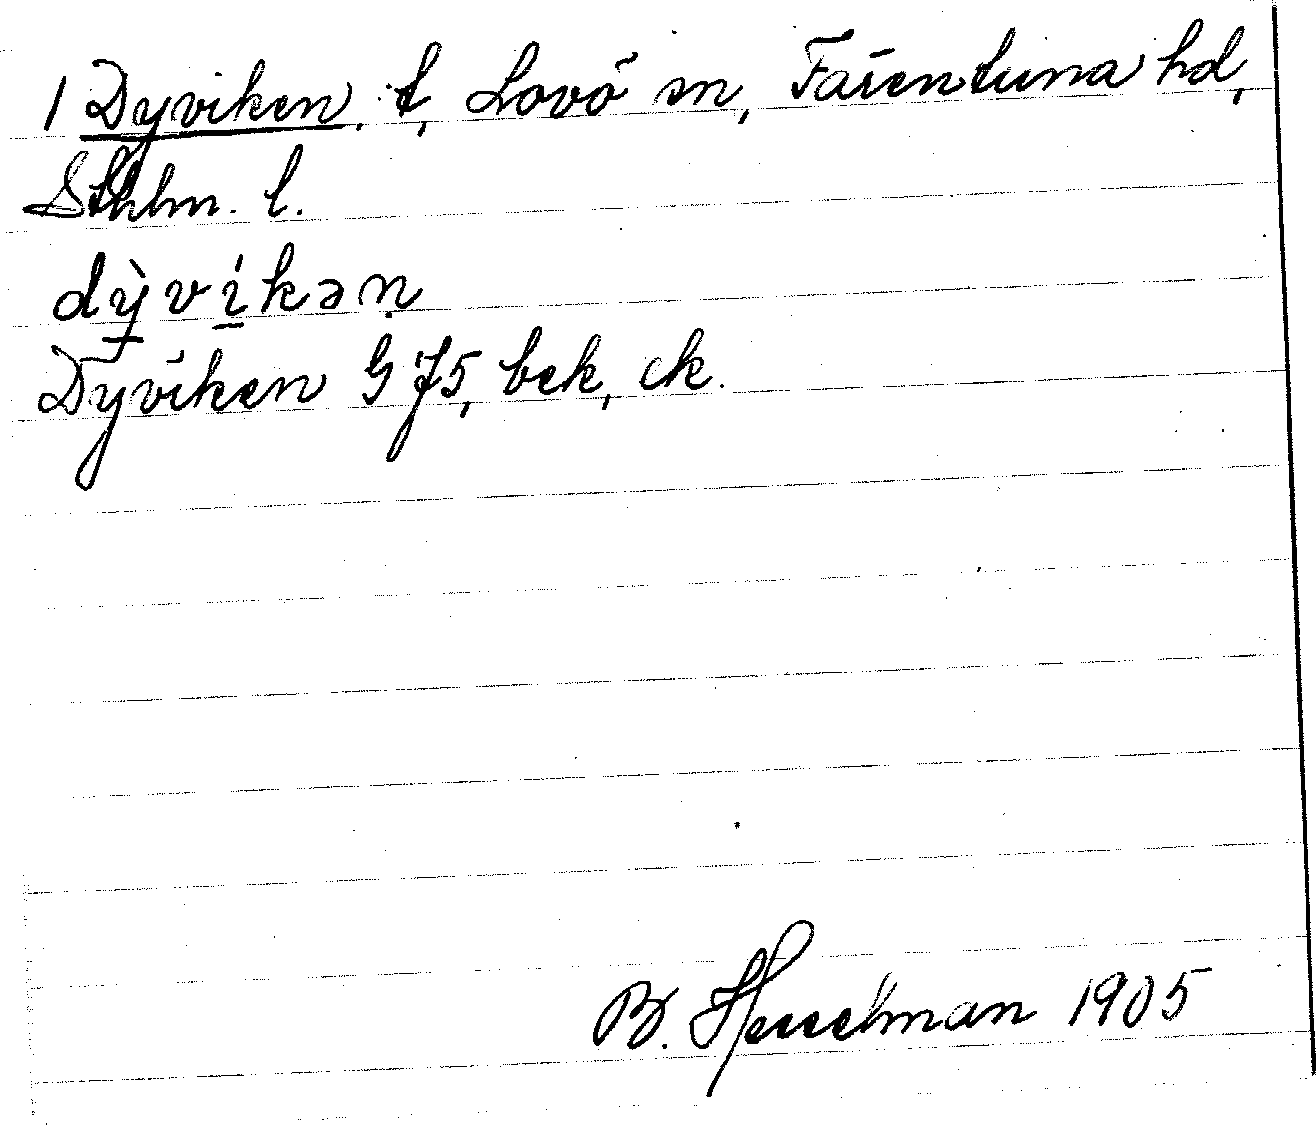 1 Dyviken, t, Lovö sn, Färentuna hd,
Sthlm. l.
dỳ̠ví̠kəṇ
Dyviken G J5, bek, ek.
B. Hesselman 1905